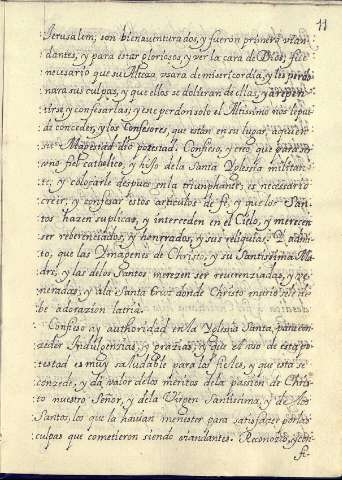 11
Jerusalem; son bienaventurados, y fueron primero vian-
dantes, y para estar gloriosos, y ver la cara de Dios, fue
necesario que su Alteza vsara de misericordia, y les perdo-
nara sus culpas, y que ellos se dolieran de ellas, y arepen-
tirse y confesarlas, y ese perdon solo el Altissimo nos le pue-
de conceder, y los Confesores, que estan en su lugar, a quien
su Magestad dio potestad. Confieso, y creo, que para ser
uno fiel catholico, y hijo de la Santa Yglesia militan-
te, y colocarse despues en la triumphante, es necessario
creer, y confesar estos articulos de fe, y que los San-
tos hazen suplicas, y interceden en el Cielo, y merecen
ser reberenciados, y honrrados, y sus reliquias. Y admi-
to, que las Ymagenes de Christo, y su Santissima Ma-
dre, y las de los Santos merezen ser reuerenziadas, y ve-
neradas, y a la Santa Cruz donde Christo murio se le de-
be adorazion latria.
Confieso ay authoridad en la Yglesia Santa, para con-
zeder Indulgensias, y grazias, y que el uso de esta po-
testad es muy saludable para los fieles, y que esta se
conzede, y da valor de los meritos de la passion de Chris-
to nuestro Señor, y de la Virgen Santissima, y de los
Santos, los que la hauian menester para satisfazer por las
culpas que cometieron siendo viandantes. Reconozco, y con-
fi-